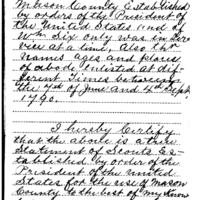 Mason County Established
by orders of the President of
the United States and of
Wm Six only was in ser
vice at a time, Also the
names ages and places
of abode Enlisted at dif
ferent Times between
the 7th of June and 4th Sept.
1790.
I hereby Certify
that the above is a true
Statement of Scouts Es-
tablished by order of the
President of the United
States for the use of Mason
County to the best of my know